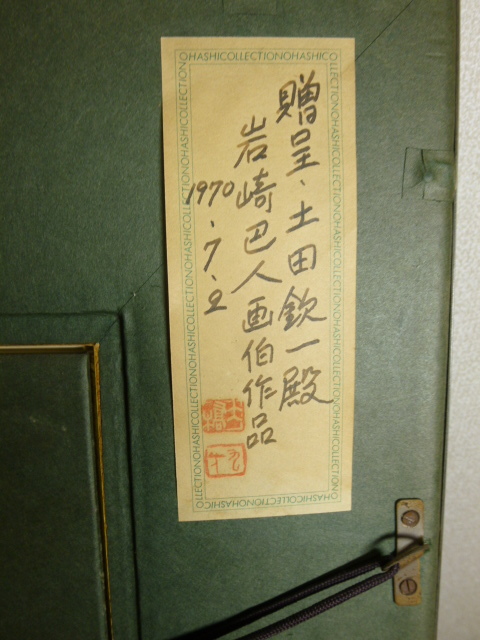 OHASHICOLLECTIONOHASHICOLLECTIONOHASHICOLLECTION
贈呈、土田欽一殿
岩崎巴人画伯作品
1970.7.2
大橋